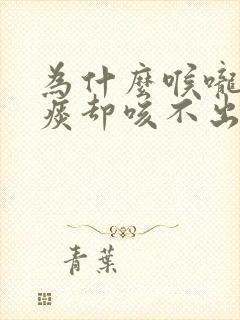 為什麼喉嚨
痰却咳不出
青葉